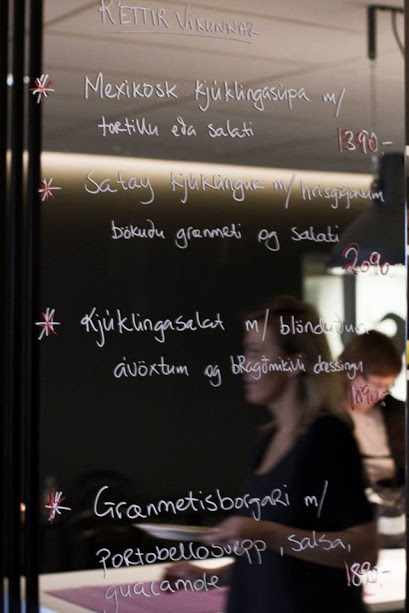 RÉTTIR VIKUNNAR
* Mexikósk kjúklingasúpa m/
tortillu eða salati
1390-
* Satay kjúklingur m/hrísgrjónum
bökuðu grænmeti og salati
2090-
* Kjúklingasalat m/ blönduðum
ávöxtum og bragðmikilli dressingu
1890-
* Grænmetisborgari m/
portobellosvepp, salsa,
1890-
guacamole